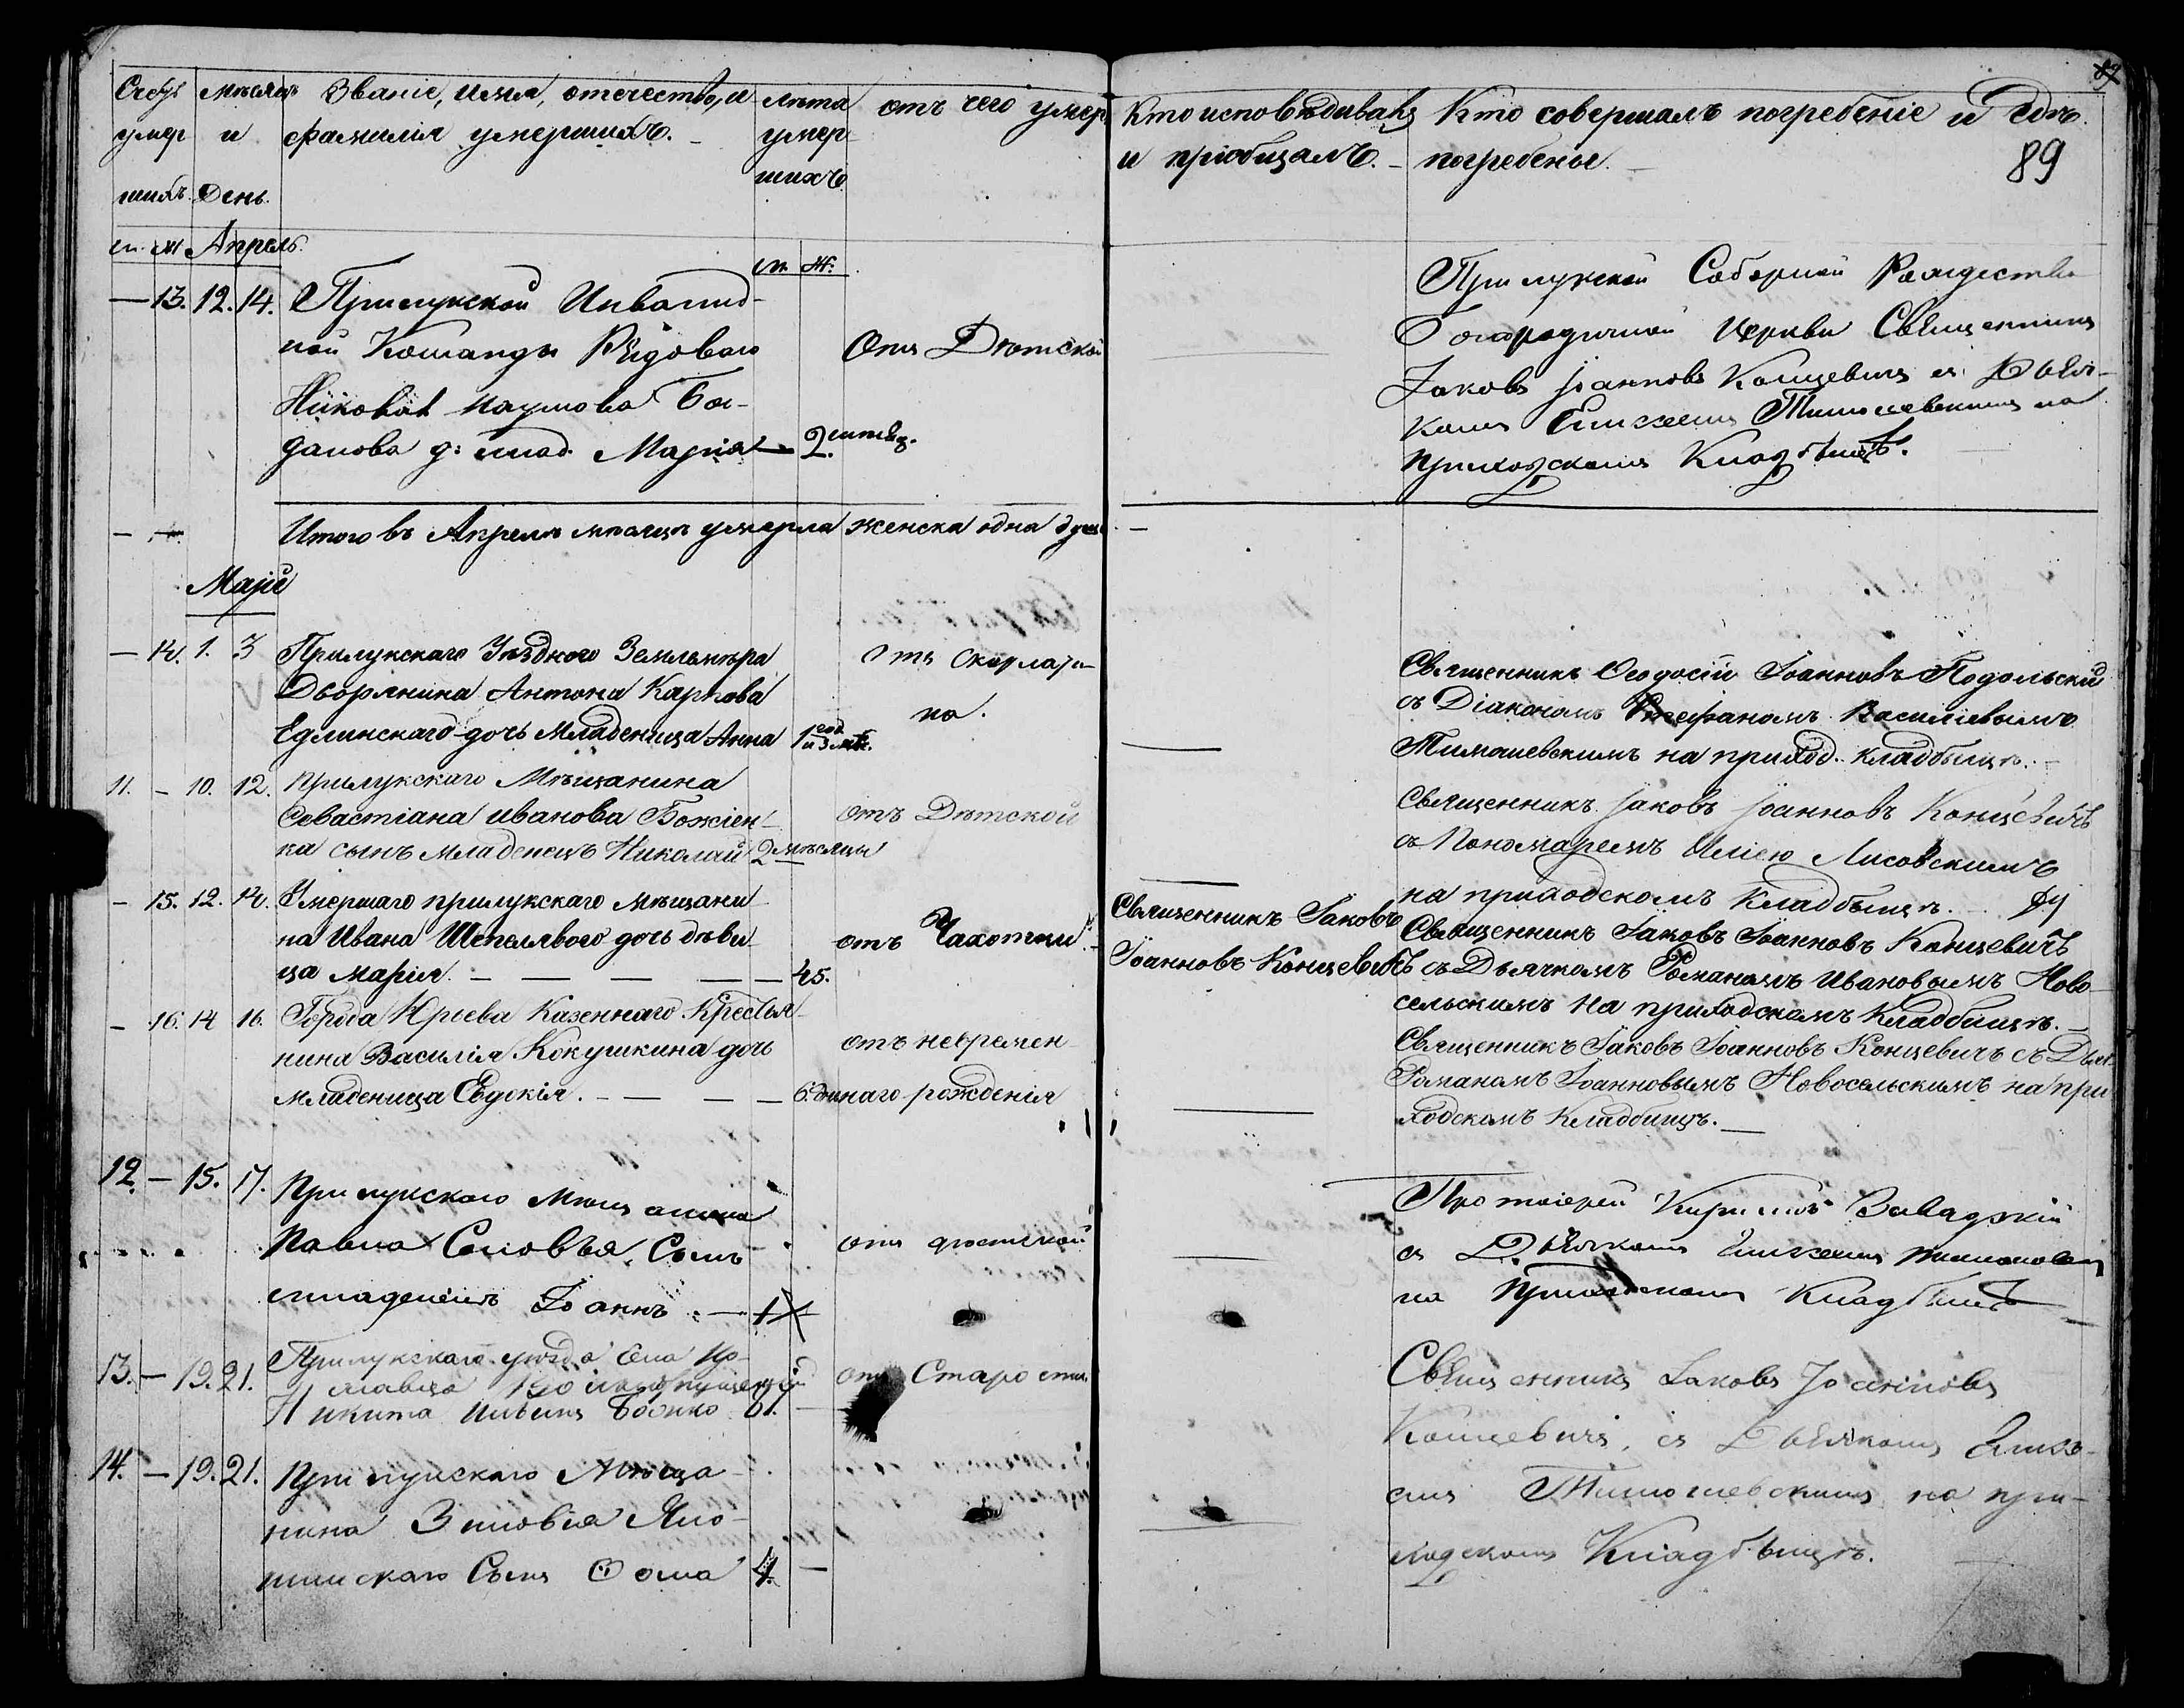 Счетъ умер шихъ.
мѣсяцъ и День.
Званіе, имя, отечество, и
фамилія умершихъ.
лѣта умер шихъ
отъ чего умер
Кто исповѣдывалъ
и пріобщалъ.
Кто совершалъ погребеніе и Гдѣ
погребены.
89
м. ж. Апрель.
м. ж.
— 13. 12. 14. Прилукской Инвалид-
ной Команды Рядоваго
Наумова Бог-
данова д: млад. Марія — 2.
Отъ Дѣтской
Прилукской Соборной Рождество
Богородичной Церкви Священникъ
Іаковъ Іоанновъ Концевичъ съ Дьяч-
комъ Тимошевскимъ на
приходскомъ Кладбищѣ.
Итого въ Апрелѣ мѣсяцѣ умерла женска одна душа
Маій
— 14. 1. 3 Прилукскаго Уѣзднаго Землемѣра
Дворянина Антона Карпова
Едлинскаго дочь Младеница Анна 1 год и 3 мѣс.
Отъ Скарлати-
на.
Священникъ Ѳеодосій Іоанновъ Подольскій
съ Діакономъ Стефаномъ Василіевымъ
Тимошевскимъ на приход. кладбищѣ.
11. — 10. 12. Прилукскаго Мѣщанина
Севастіана Иванова Божіен-
ка сынъ младенецъ Николай 2 мѣсяцы
отъ Дѣтской
Священникъ Іаковъ Іоанновъ Концевичъ
съ Пономаремъ Иліею Лисовскимъ
на приходскомъ Кладбищѣ.
— 15. 12. 14. Умершаго прилукскаго мѣщани-
на Ивана Шепелявого дочь дѣви-
ца Марія. — — — — 45.
отъ Чахотки
Священникъ Іаковъ
Іоанновъ Концевичъ
Священникъ Іаковъ Іоанновъ Концевичъ
съ Дьячкомъ Романомъ Ивановымъ Ново-
сельскимъ на приходскомъ Кладбищѣ. —
— 16. 14 16. Города Юрьева Казеннаго Крестья-
нина Василія Кокушкина дочь
младеница Евдокія. — — — — 6. дни
отъ невремен
наго рожденія
Священникъ Іаковъ Іоанновъ Концевичъ съ Дьяч
Романомъ Іоанновымъ Новосельскимъ на при
ходскомъ Кладбищѣ. —
12. — 15. 17. Прилукскаго Мѣщанина
Павла Соловья, Сынъ
младенецъ Іоаннъ — 1
отъ дѣтской
Протоіерей Кириллъ Завадзкій
съ Дьячкомъ
на Приходскомъ Кладбищѣ
13. — 19. 21. Прилукскаго уѣзда
Никита
отъ Старости
Священникъ Іаковъ Іоанновъ
Концевичъ, съ Дьячкомъ Елисе-
емъ Тимошевскимъ на при-
ходскомъ Кладбищѣ.
14. — 19. 21. Прилукскаго Мѣща-
нина Зиновія
Сынъ Ѳома 4. —